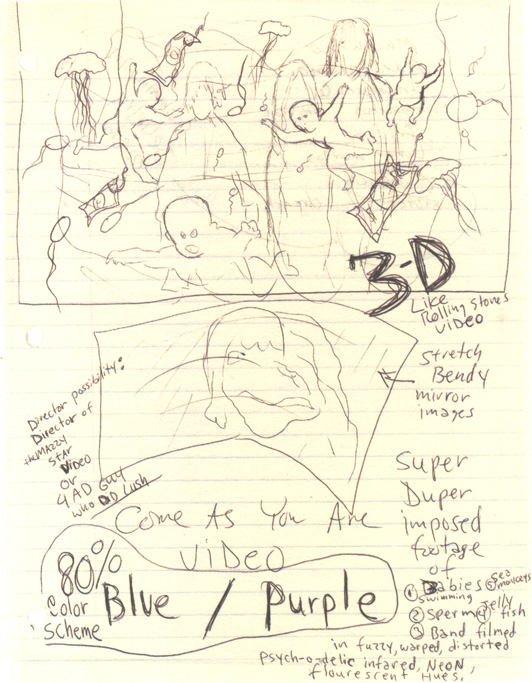 3-D
Like
Rolling stones
Video
Stretch
Bendy
mirror
images
Director possibility:
Director of
the Mazzy
Star
Video
or
4 AD Guy
who DD Lush
Come As You Are
Video
80%
Color
Scheme
Blue / Purple
Super
Duper
imposed
footage
of
① Babies
swimming
② Sperm
③ Band filmed
④ Jelly fish
⑤ sea
monkeys
in fuzzy, warped, distorted
Psych-o-delic infared, Neon,
flourescent Hues.